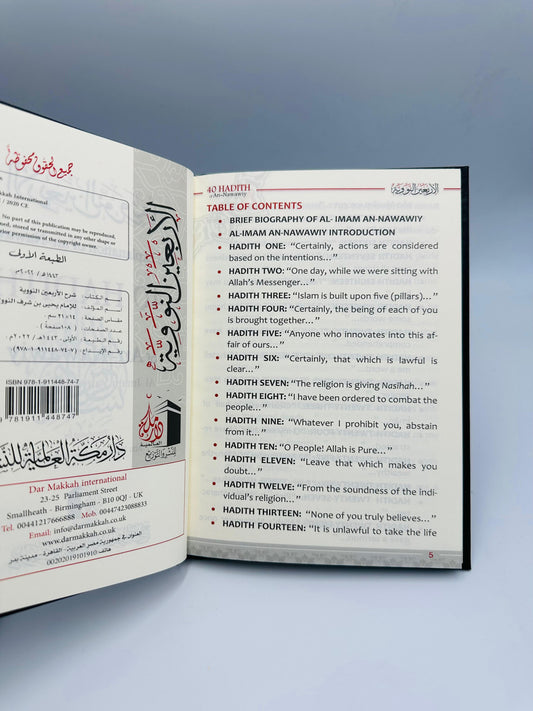 جميع الحقوق محفوظة
Makkah International
/ 2020 CE
No part of this publication may be reproduced,
stored, or transmitted in any other shape or
prior permission of the copyright owner.
الطبعة الأولى
١٤٤٣هـ / ٢٠٢٢م
اسم الكتاب: شرح الأربعين النووية
للإمام يحيى بن شرف النووي
مقاس الصفحة: ١٤×٢١سم
عدد الصفحات: (١٠٨ صفحة)
رقم الطبعة: الأولى ١٤٤٣هـ - ٢٠٢٢م
رقم الإيداع: (٧-٧٤-٩١١٤٤٨-١-٩٧٨)
ISBN 978-1-911448-74-7
9 781911 448747
الأربعين النووية
دار مكة
العالمية
للنشر والتوزيع
دار مكة العالمية للنشر
Dar Makkah international
23-25 Parliament Street
Smallheath - Birmingham - B10 0QJ - UK
Tel. 00441217666888 Mob. 00447423088833
Email: info@darmakkah.co.uk
www.darmakkah.co.uk
العنوان في جمهورية مصر العربية - القاهرة - مدينة بدر
00202019101910
40 HADITH
An-Nawawiy
الأربعين النووية
TABLE OF CONTENTS
• BRIEF BIOGRAPHY OF AL- IMAM AN-NAWAWIY
• AL-IMAM AN-NAWAWIY INTRODUCTION
• HADITH ONE: “Certainly, actions are considered
based on the intentions...”
• HADITH TWO: “One day, while we were sitting with
Allah’s Messenger...”
• HADITH THREE: “Islam is built upon five (pillars)...”
• HADITH FOUR: “Certainly, the being of each of you
is brought together...”
• HADITH FIVE: “Anyone who innovates into this af-
fair of ours...”
• HADITH SIX: “Certainly, that which is lawful is
clear...”
• HADITH SEVEN: “The religion is giving Nasihah...”
• HADITH EIGHT: “I have been ordered to combat the
people...”
• HADITH NINE: “Whatever I prohibit you, abstain
from it...”
• HADITH TEN: “O People! Allah is Pure...”
• HADITH ELEVEN: “Leave that which makes you
doubt...”
• HADITH TWELVE: “From the soundness of the indi-
vidual’s religion...”
• HADITH THIRTEEN: “None of you truly believes...”
• HADITH FOURTEEN: “It is unlawful to take the life
5